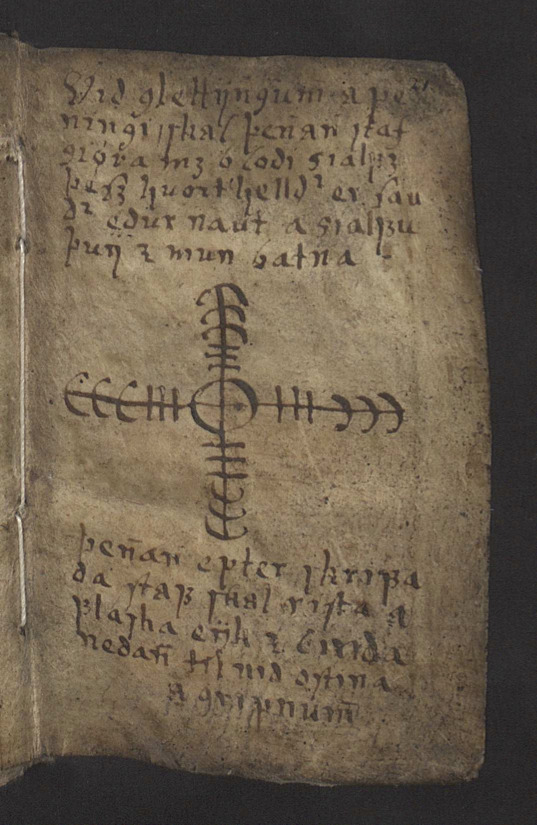 Vid glettijngum a pe
ningi skal þeñan staf
giora mz blodi sialfz
þesz huort helldr er sau
dr edur naut a sialfu
þuij z mun batna
þeñan epter skrifa
da staf skal rista a
flaska eijk z binda
nedañ til vid ostina
a gripnum̄